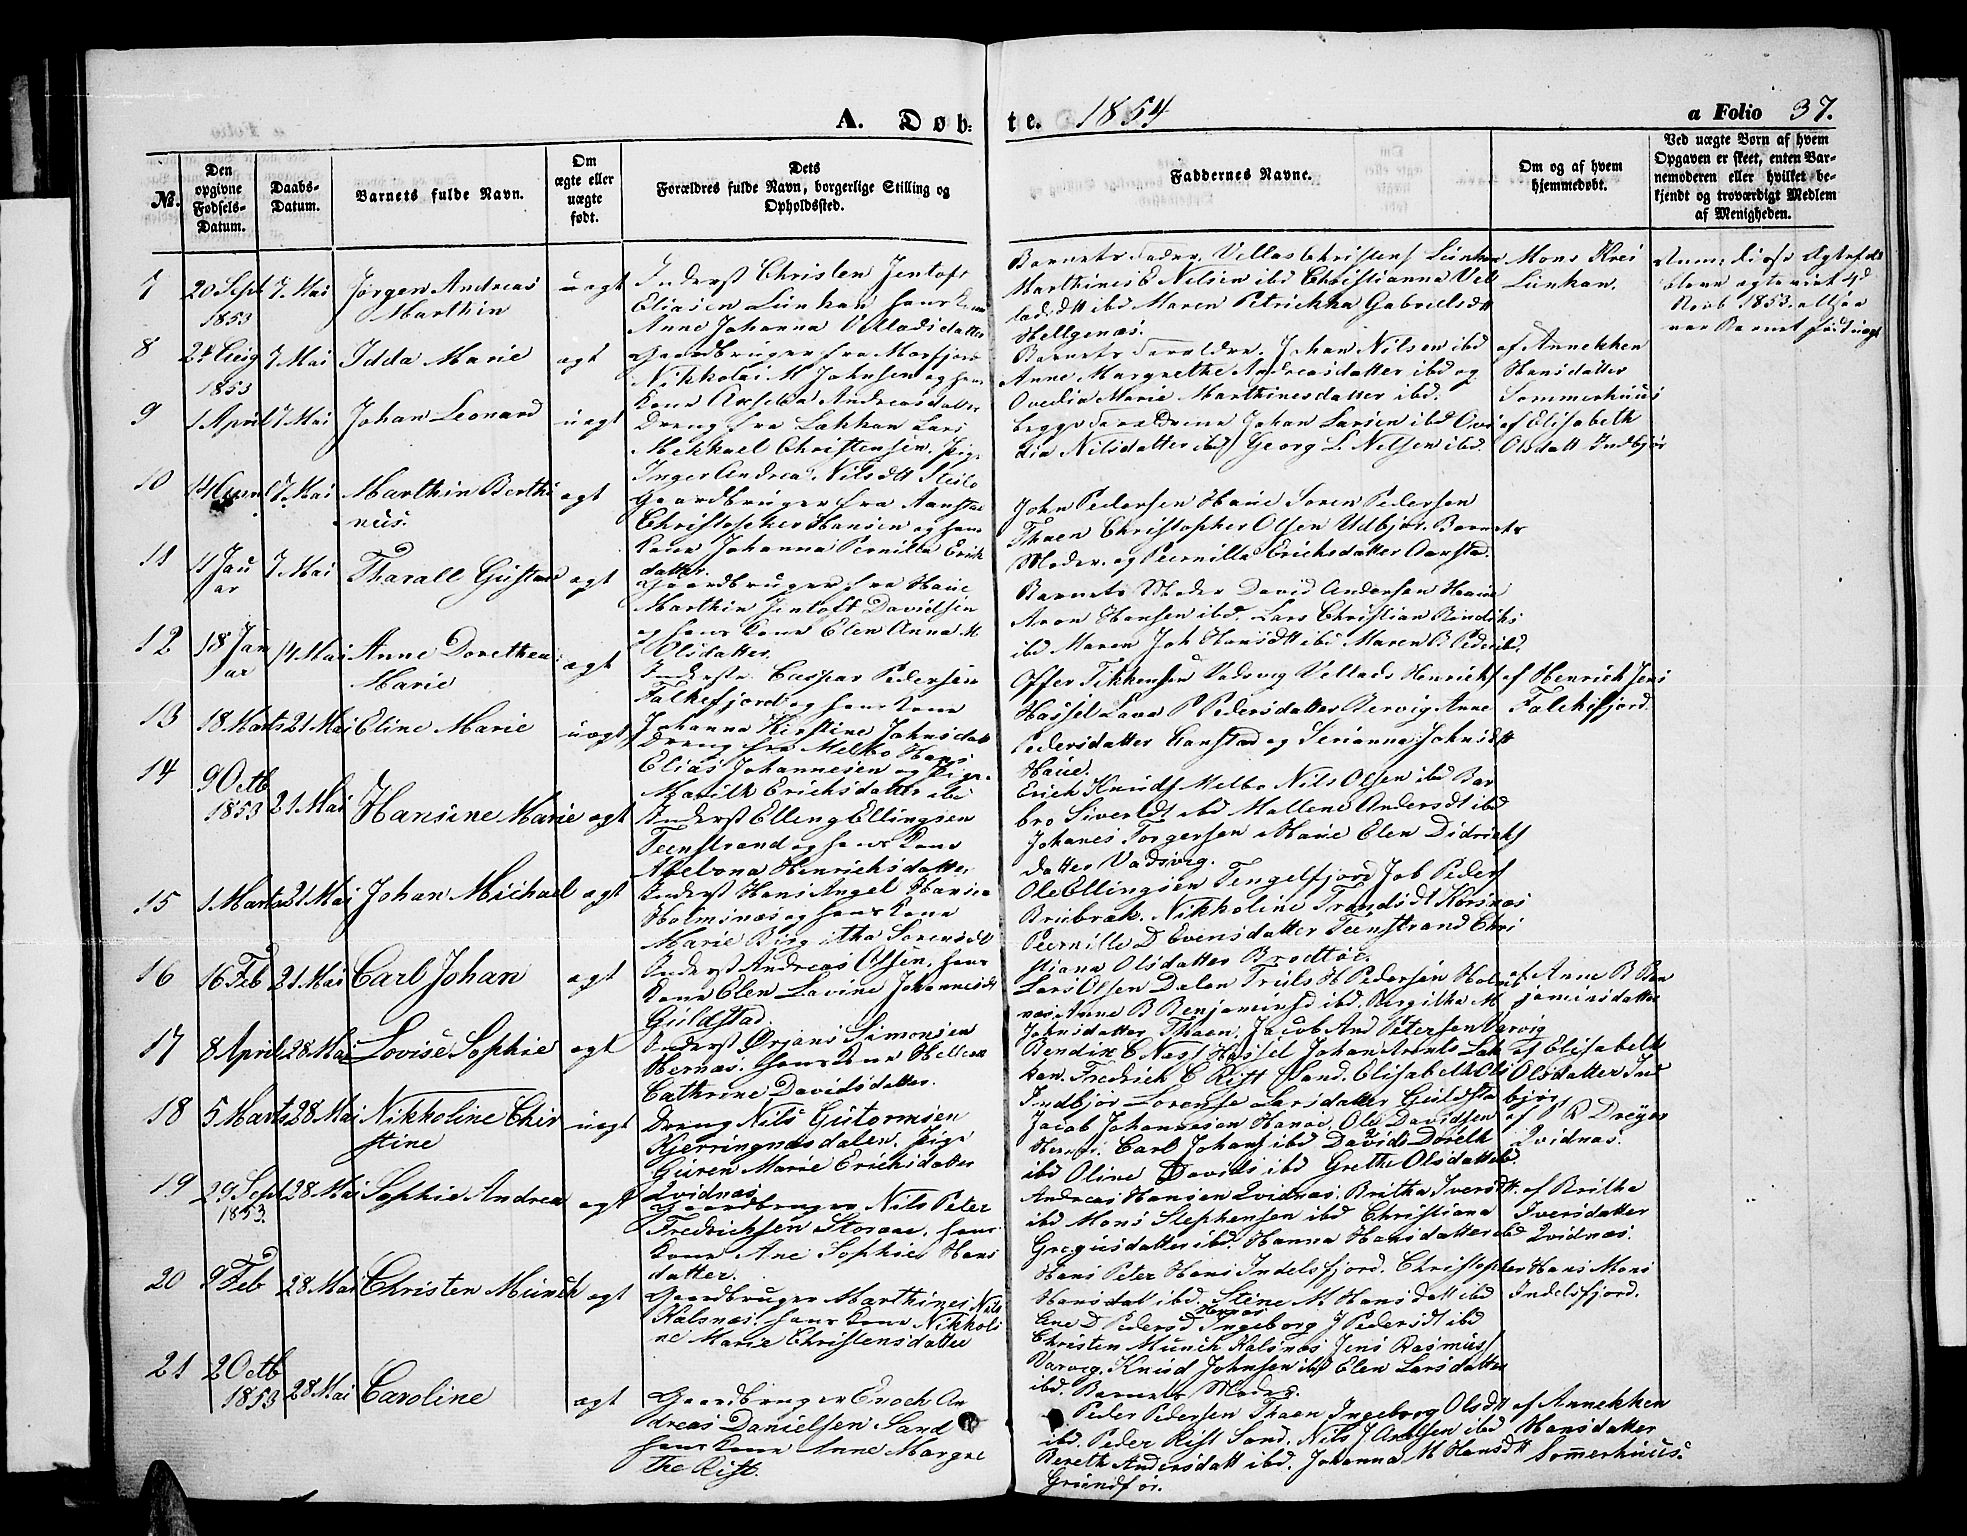 A. Døb-te. 1854
a Folio 37.
№.
Den opgivne Fødsels-Datum.
Daabs-Datum.
Barnets fulde Navn.
Om ægte eller uægte født.
Dets Forældres fulde Navn, borgerlige Stilling og Opholdssted.
Faddernes Navne.
Om og af hvem hjemmedøbt.
Ved uægte Børn af hvem Opgaven er skeet, enten Barnemoderen eller hvilket bekjendt og troværdigt Medlem af Menigheden.
7
20 Sept 1853
7 Mai
Jørgen Andreas
Marthin
uægt
Inderst Christen Jentoft
Eliasen Lunkan hans Kone
Anne Johanna Velladsdatter
Barnets Fader, Vellas Christens Lunkan
Marthines E Nilsen ibd Christianna Vel
ladsdtt ibd Maren Petrikka Gabrielsdtt
Hellgenæs.
Mons
Lunkan.
8
1853
7 Mai
Idda Marie
ægt
Gaardbruger fra
Nikkolai M Johnsen og hans
Kone Axelia Andreasdatter
Barnets Forældre. Johan Nilsen ibd
Anne Margrethe Andreasdatter ibd og
Ovedia Marie Marthinesdatter ibd.
af Annekken
Hansdatter
Sommerhuus
9
1 April
7 Mai
Johan Leonard
uægt
Dreng fra Lakkan Lars
Mekkael Christensen, Pige
Inger Andrea Nilsdtt
begge Forældrene Johan Larsen ibd Ove
dia Nilsdatter ibd Georg L. Nilsen ibd.
af Elisabeth
Olsdatt Indbjør
10
7 Mai
Marthin Berthi
nus.
ægt
Gaardbruger fra Aanstad
Christopher Hansen og hans
Kone Johanna Pernilla Erik
datter.
John Pedersen Haue Søren Pedersen
Thaen Christopher Olsen Udbjør. Barnets
Moder. og Peernilla Erichsdatter Aanstad.
11
11 Jan
uar
7 Mai
Tharall Gustav
ægt
Gaardbruger fra Haue
Marthin Jentoft Davidsen
og hans Kone Elen Anna M.
Olsdatter.
Barnets Moder David Andersen Haue
Aron Hansen ibd. Lars Christian
ibd Maren Joh Hansdtt ibd Maren B Peders ibd.
12
18 Jan
uar
14 Mai
Anne Dorethea
Marie
ægt
Inderste Caspar Pedersen
Falkefjord og hans Kone
Johanna Kirstine Johnsdatt
Offer Tikkensen Vadsvig Vellads Henrichs
Hassel Lava P Pedersdatter Bervig Anne
Pedersdatter Aanstad og Serianna Johnsdtt
Haue.
af Henrich Jens
Falckefjord.
13
18 Marts
21 Mai
Eline Marie
uægt
Dreng fra Melbo Hans
Elias Johannesen og Pige
Marith Erichsdatter ibd
Erich Knuds Melbo Nils Olsen ibd Bar
bro Siverdt ibd Mallene Andersdt ibd
14
9 Octb
1853
21 Mai
Hansine Marie
ægt
Inderst Elling Ellingsen
Teenstrand og hans Kone
Abelona Henrichsdatter
Johanes Torgersen Haue Elen Didrichs
datter Vadsvig.
Ole Ellingsen Tengelfjord Job Peders
15
1 Marts
21 Mai
Johan Michael
ægt
Inderst Hans Angel Hansen
Holmsnæs og hans Kone
Marie Birgitha Sorensdt
Brubrak. Nikkoline Trondsdt Korsnæs
Peernille D Evensdatter Teenstrand Chri
stiana Olsdatter
16
16 Feb
21 Mai
Carl Johan
ægt
Inderst Andreas Olsen, hans
Kone Elen Lavine Johannesdt
Guldstad.
Lars Olsen Dalen Truls H Pedersen Holms
næs Anne B Benjaminsd ibd. Bergitha M
Johnsdatter Thaen, Jacob And Petersen Varvig
af Anne B Ben
jaminsdatter
17
8 April
28 Mai
Lovise Sophie
ægt
Inderst Ørjans Simonsen
Hernæs. hans Kone Hellena
Cathrine Davidsdatter.
Bendix C Nass Hassel Johan Arents Lak
kan. Fredrich C Rist Sand. Elisabeth Ols
Indbjør Lorense Larsdatter Guldsta
af Elisabeth
Olsdatter Ind
bjør
18
5 Marts
28 Mai
Nikkoline Chir
stine
uægt
Dreng Nils Gutormsen
Kjerringnæsdalen, Pige
Guren Marie Erichsdatter
Qvidnæs
Jacob Johannesen Hanøe, Ole Davidsen
Hernæs. Carl Johans ibd Davids Doreth
ibd Oline Davids ibd Grethe Olsdatter ibd.
af R Dreyer
Qvidnæs.
19
29 Sept
1853.
28 Mai
Sophie Andrea
ægt
Gaardbruger Nils Peter
Fredrichsen Storaae, hans
Kone Ane Sophie Hans
datter.
Andreas Hansen Qvidnæs, Britha Iversdtt.
ibd Mons Stephensen ibd Christiana
Gregusdatter ibd. Hanna Hansdatter ibd
af Britha
Iversdatter
Qvidnæs.
20
9 Feb
28 Mai
Christen Munch
ægt
Gaardbruger Marthines Nils
Kalsnæs. hans Kone Nikkoli
ne Marie Christensdatter
Hans Peter Hans Indelsfjord. Christopher
Hansdatt ibd. Stine M Hansdatt ibd
Hernæs
Ene D Pedersd Ingeborg J Pedersdt ibd
Christen Munch Kalsnæs Jens Rasmus
Varvig. Knud Johnsen ibd Elen Larsdatter
ibd. Barnets Moder.
Hans Mons
Indelsfjord.
21
2 Octb
1853
28 Mai
Caroline
ægt
Gaardbruger Enoch An
dreas Danielsen Sand
hans Kone Anne Margre
the Rist.
Peder Pedersen Thaen Ingeborg Olsdtt
ibd. Peder Rist Sand. Nils J Antsen ibd
Bereth Andersdatt ibd. Johanna M Hansdtt
Grundfør.
af Annekken
Hansdatter
Sommerhuus.